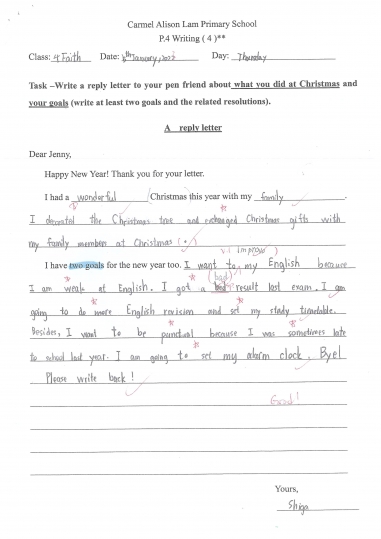 Carmel Alison Lam Primary School
P.4 Writing ( 4 )**
Class: 4 Faith Date: 6th January, 2022 Day: Thursday
Task –Write a reply letter to your pen friend about what you did at Christmas and
your goals (write at least two goals and the related resolutions).
A reply letter
Dear Jenny,
Happy New Year! Thank you for your letter.
I had a wonderful Christmas this year with my family.
I the Christmas tree and exchanged Christmas gifts with
my family members at Christmas (.)
v.i improve
I have two goals for the new year too. I want to my English because
(bad)
I am weak at English. I got a bad result last exam. I am
going to do more English revision and set my study timetable.
Besides, I want to be punctual because I was sometimes late
to school last year. I am going to set my alarm clock. Bye!
Please write back!
Good!
Yours,
Shiga